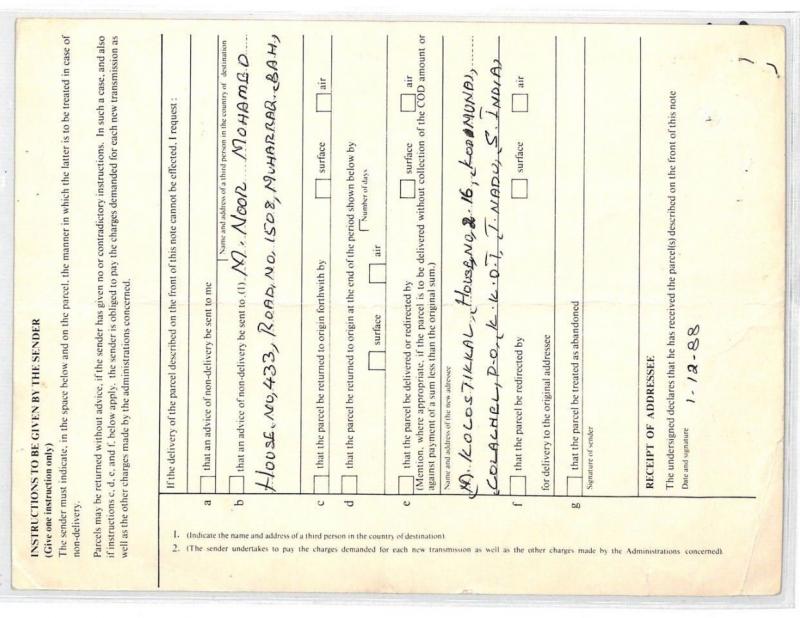 INSTRUCTIONS TO BE GIVEN BY THE SENDER
(Give one instruction only)
The sender must indicate, in the space below and on the parcel, the manner in which the latter is to be treated in case of
non-delivery.
Parcels may be returned without advice, if the sender has given no or contradictory instructions. In such a case, and also
if instructions c, d, e, and f, below apply, the sender is obliged to pay the charges demanded for each new transmission as
well as the other charges made by the administrations concerned.
If the delivery of the parcel described on the front of this note cannot be effected, I request :
a that an advice of non-delivery be sent to me
Name and address of a third person in the country of destination
b that an advice of non-delivery be sent to (1) M. NOOR MOHAMED
HOUSE. NO, 433, ROAD, NO. 1508, MUHARRAQ. BAH,
c that the parcel be returned to origin forthwith by surface air
d that the parcel be returned to origin at the end of the period shown below by
Number of days
surface air
e that the parcel be delivered or redirected by surface air
(Mention, where appropriate, if the parcel is to be delivered without collection of the COD amount or
against payment of a sum less than the original sum.)
Name and address of the new addressee
M. KOLOSTIKKAL, HOUSE, NO, 2. 16,
COLACHEL, P.O, K. K. DT, T. NADU, S. INDIA,
f that the parcel be redirected by surface air
for delivery to the original addressee
g that the parcel be treated as abandoned
Signature of sender
RECEIPT OF ADDRESSEE
The undersigned declares that he has received the parcel(s) described on the front of this note
Date and signature 1-12-88
1. (Indicate the name and address of a third person in the country of destination)
2. (The sender undertakes to pay the charges demanded for each new transmission as well as the other charges made by the Administrations concerned).